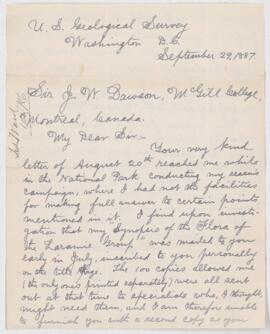 U. S. Geological Survey
Washington D.C.
September 29, 1887.
Sir J. W. Dawson, McGill College,
Montreal, Canada.
My Dear Sir:-
Your very kind
letter of August 20th reached me while
in the National Park conducting my season's
campaign, where I had not the facilities
for making full answer to certain points
mentioned in it. I find upon investi-
gation that my "Synopsis of the Flora of
the Laramie Group" was mailed to you
early in July, inscribed to you personally
on the title page. The 100 copies allowed me
(the only ones printed separately) were all sent
out at that time to specialists who, I thought,
might need them, and I am therefore unable
to furnish you with a second copy as you